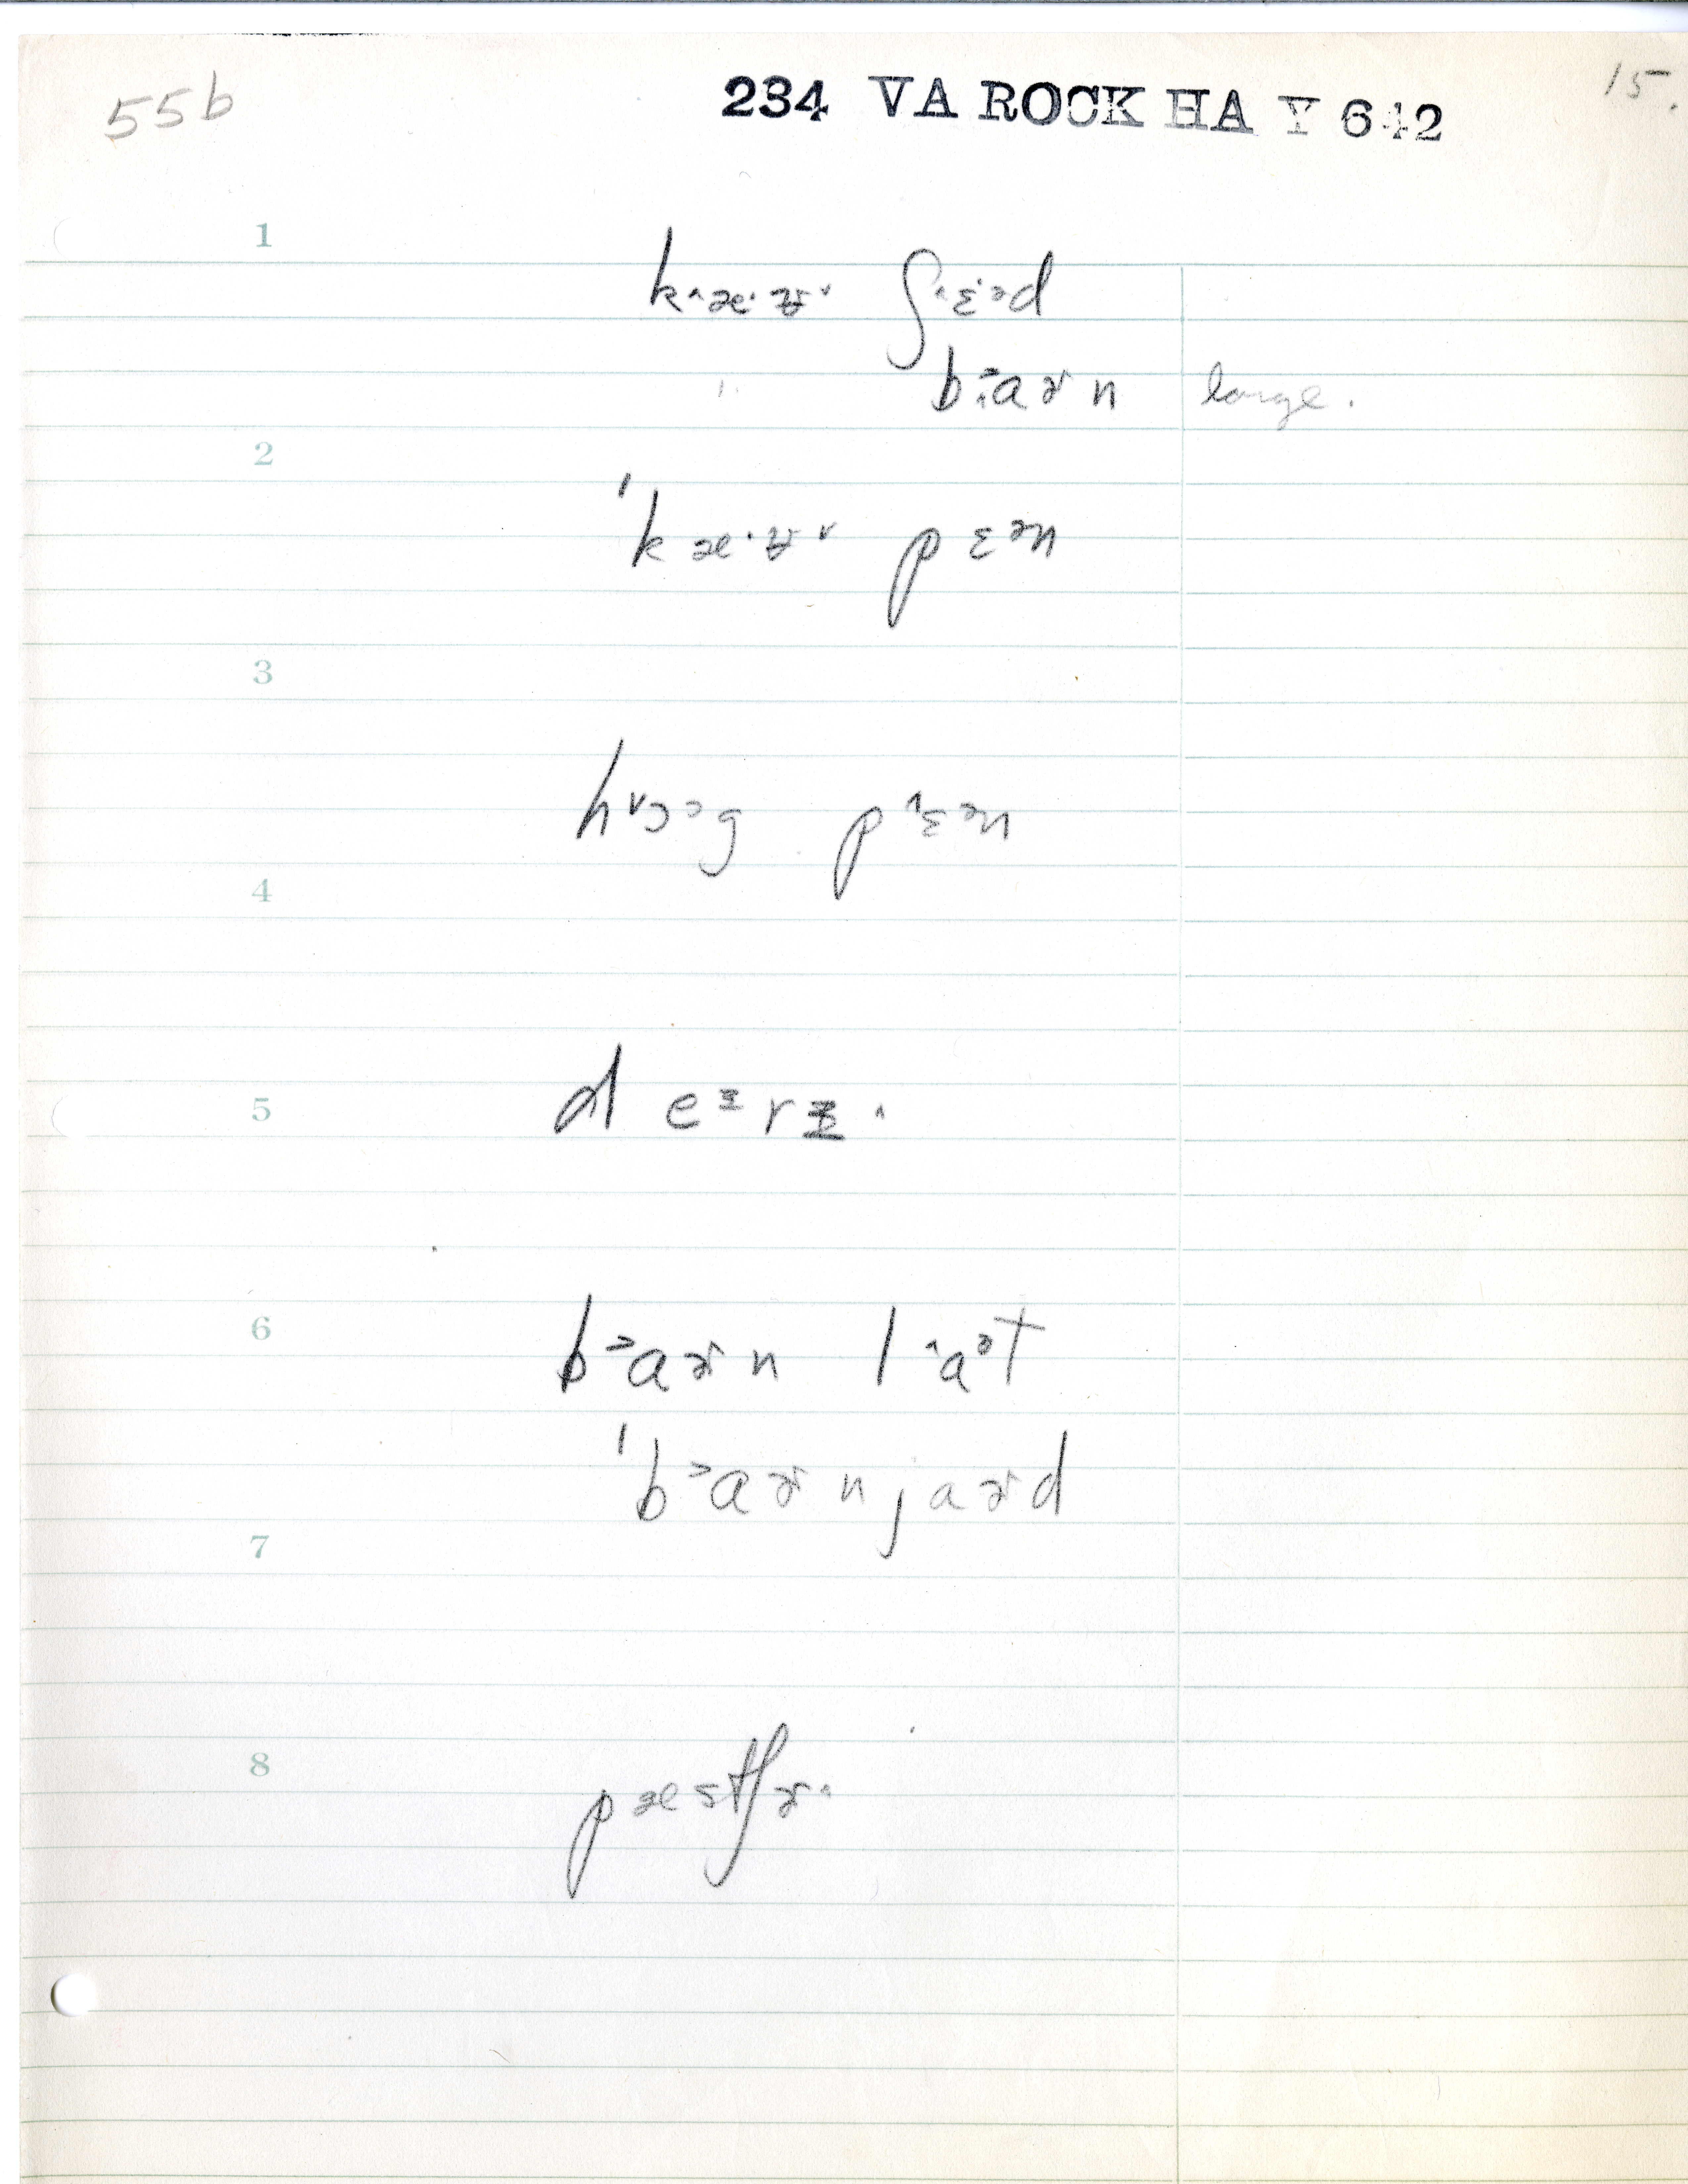 55b 234 VA ROCK HA Y 642 15.
1
k˄æ·ʊ˅ ʃ˄ɛ·ᵊd
" bᵓaɚn large.
2
ˈkæ·ʊ˅ pɛᵊn
3
h˅ɔᵓg p˄ɛᵊn
4
5
deᶤrɨ·˄
6
bᵓaɚn l˄aᵊt
ˈbᵓaɚnjaɚd
7
8
pæstʃɚ·˄